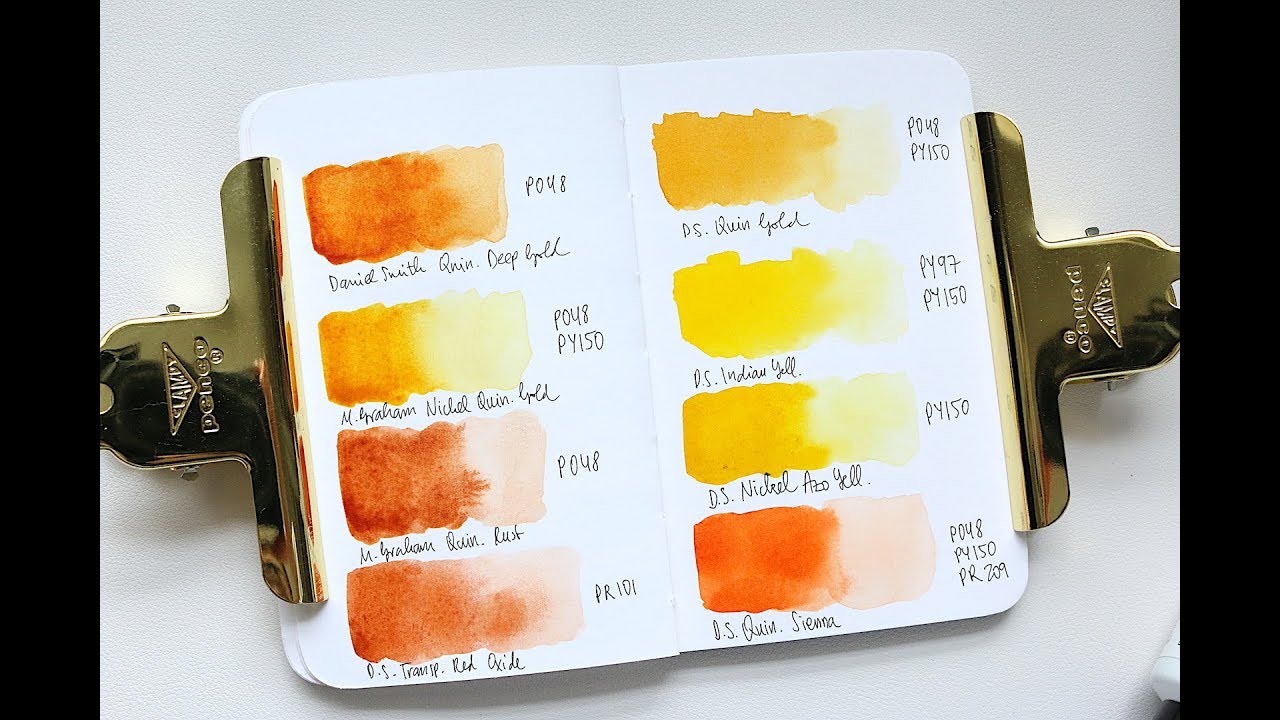 PO48
Daniel Smith Quin. Deep Gold
PO48
PY150
M. Graham Nickel Quin. Gold
PO48
M. Graham Quin. Rust
PR101
D.S. Transp. Red Oxide
PO48
PY150
D.S. Quin Gold
PY97
PY150
D.S. Indian Yell.
PY150
D.S. Nickel Azo Yell.
PO48
PY150
PR209
D.S. Quin. Sienna
CLAMPY
penco®
CLAMPY
penco®